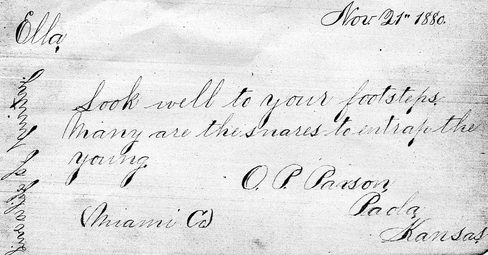 Nov 21st 1880.
Ella,
Look well to your footsteps
Many are the snares to entrap the
young
O. P. Parson,
Paola,
(Miami Co)
Kansas